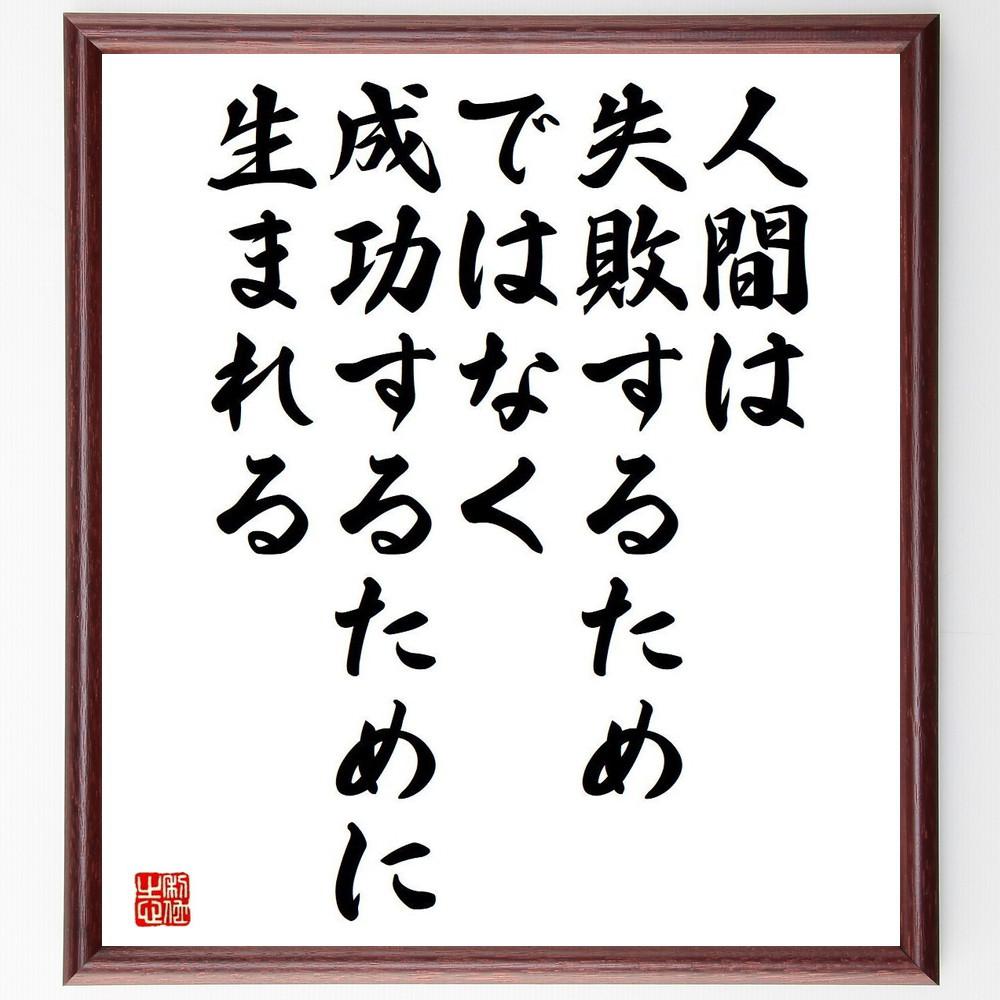 人間は
失敗するため
ではなく
成功するために
生まれる